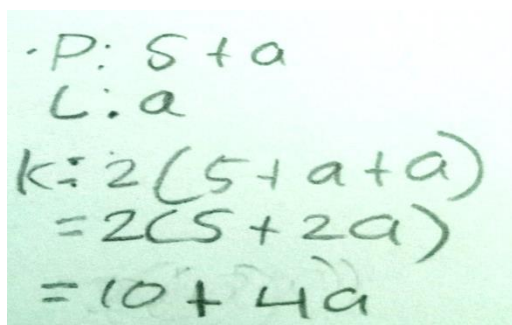 ·P: 5 + a
L: a
K: 2(5 + a + a)
= 2(5 + 2a)
= 10 + 4a